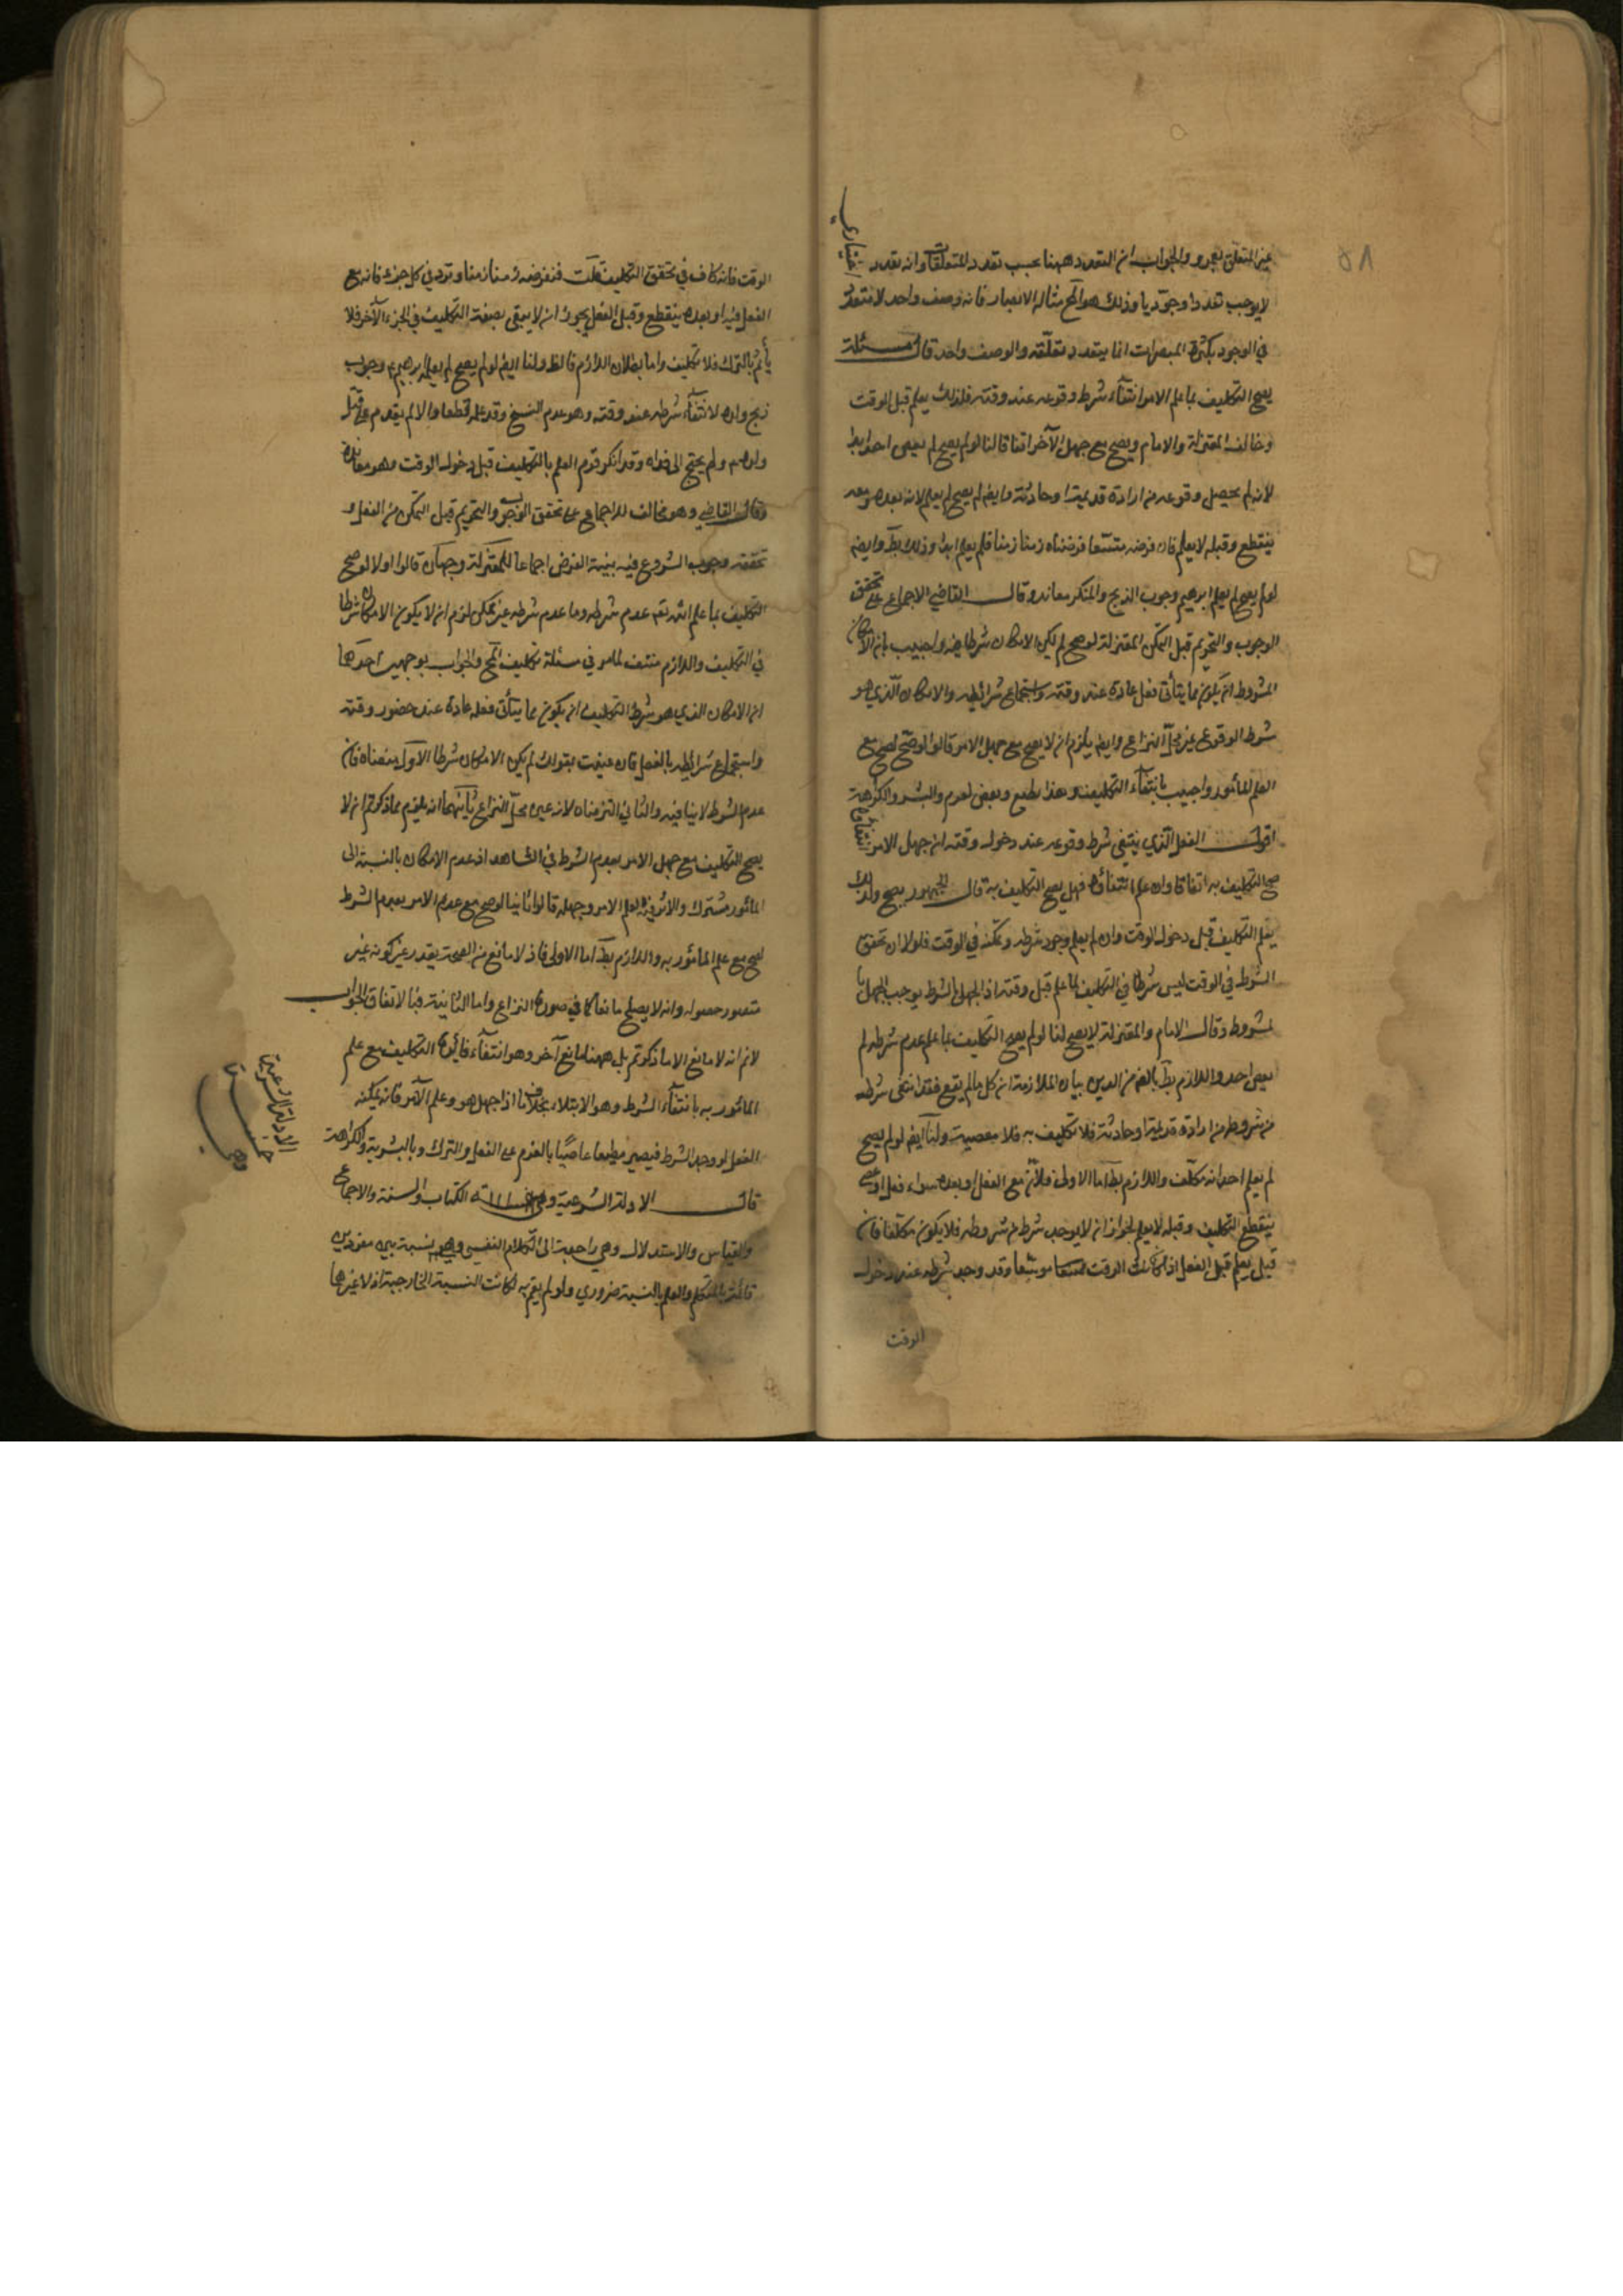 ٥٨
غير المتعلق بعمرو والجواب ان التعدد ههنا بحسب تعدد المتعلقات وانه تعدد اعتباري
لا يوجب تعددا وجوديا وذلك هو المح مثاله الابصار فانه وصف واحد لا يتعدد
في الوجود بكثرة المبصرات انما يتعدد تعلقه والوصف واحد قال مسئلة
يصح التكليف بما علم الامر انتفاء شرط وقوعه عند وقته فلذلك يعلم قبل الوقت
وخالف المعتزلة والامام ويصح مع جهل الآخر اتفاقا لنا لو لم يصح لم يعص احد ابدا
لانه لم يحصل وقوعه من ارادة قديمة او حادثة وايض لم يصح لم يعلم لانه بعده ومعه
ينقطع وقبله لا يعلم فان فرضه متسعا فرضناه زمنا زمنا فلم يعلم ابدا وذلك بط وايض
لو لم يصح لم يعلم ابرهيم وجوب الذبح والمنكر معاند وقال القاضي الاجماع على تحقق
الوجوب والتحريم قبل التمكن المعتزلة لو صح لم يكن الامكان شرطا فيه واجيب بان الامكان
المشروط ان يكون مما يتأتى فعل عادة عند وقته واستجماع شرائطه والامكان الذي هو
شرط الوقوع غير محل النزاع وايض يلزم ان لا يصح مع جهل الامر قالوا لو صح لصح مع
العلم المأمور واجيب بانتفاء التكليف وهذا يطيع ويعصي لعزم والبشر والكراهة
اقول الفعل الذي ينتفي شرط وقوعه عند دخول وقته ان جهل الامر انتفاؤه
صح التكليف به اتفاقا وان علم انتفاؤه فهل يصح التكليف به قال الجمهور يصح ولذلك
يعلم التكليف قبل دخول الوقت وان لم يعلم وجود شرطه وتمكنه في الوقت فلولا ان تحقق
الشرط في الوقت ليس شرطا في التكليف لما علم قبل وقته اذ الجهل بالشرط يوجب الجهل با
لمشروط وقال الامام والمعتزلة لا يصح لنا لو لم يصح التكليف بما علم عدم شرطه لم
يعص احد واللازم بط بالض من الدين بيان الملازمة ان كل ما لم يقع فقد انتفى شرطه
من شروطه من ارادة قديمة او حادثة فلا تكليف به فلا معصية ولنا ايض لو لم يصح
لم يعلم احد انه مكلف واللازم بط اما الاولى فلأن مع الفعل او بعده سواء فعل او عصى
ينقطع التكليف وقبله لا يعلم لجواز ان لا يوجد شرط من شروطه فلا يكون مكلفا فان
قيل يعلم قبل الفعل اذا كان الوقت متسعا موسعا وقد وجد شرطه عند دخول
الوقت
الوقت فانه كاف في تحقق التكليف قلت فنفرضه زمنا زمنا وتردد في كل جزء فانه مع
الفعل فيه او بعده ينقطع وقبل الفعل يجوز ان لا يبقى بصفة التكليف في الجزء الآخر فلا
يأثم بالترك فلا تكليف واما بطلان اللازم فالظ ولنا ايض لو لم يصح لم يعلم ابرهيم ع وجوب
ذبح ولده لانتفاء شرطه عند وقته وهو عدم النسخ وقد علمه قطعا والا لم يقدم على قتل
ولده ولم يحتج الى فداء وقد انكر قوم العلم بالتكليف قبل دخول الوقت وهو معاندة
وقال القاضي وهو مخالف للاجماع على تحقق الوجوب والتحريم قبل التمكن من الفعل و
تحققه وجوب الشروع فيه بنية الفرض اجماعا للمعتزلة وجهان قالوا اولا لو صح
التكليف بما علم الله تع عدم شرطه وما عدم شرطه غير ممكن لزم ان لا يكون الامكان شرطا
في التكليف واللازم منتف لما مر في مسئلة تكليف المح والجواب بوجهين احدهما
ان الامكان الذي هو شرط التكليف ان يكون مما يتأتى فعله عادة عند حضور وقته
واستجماع شرائطه بالفعل فان عنيت بقولك لم يكن الامكان شرطا الاول منعناه فان
عدم الشرط لا ينافيه والثاني التزمناه لانه عين محل النزاع ثانيهما انه يلزم بما ذكرتم ان لا
يصح التكليف مع جهل الامر بعدم الشرط في الشاهد اذ عدم الامكان بالنسبة الى
المأمور مشترك ولا اثر فيه لعلم الامر وجهله قالوا ثانيا لو صح مع عدم الامر بعدم الشرط
لصح مع علم المأمور به واللازم بط اما الاولى فاذ لا مانع من الصحة يقدر غير كونه غير
متصور حصوله وانه لا يصلح مانعا كما في صورة النزاع واما الثانية فبالاتفاق الجواب
لانم انه لا مانع الا ما ذكرتم بل ههنا مانع آخر وهو انتفاء فائدة التكليف مع علم
المأمور به بانتفاء الشرط وهو الابتلاء بخلاف ما اذا جهل هو وعلم الآمر فانه يمكنه
الفعل لو وجد الشرط فيصير مطيعا عاصيا بالعزم على الفعل والترك وبالبشر به والكراهة
قال الادلة الشرعية وهي خمسة الكتاب والسنة والاجماع
والقياس والاستدلال وهي راجعة الى الكلام النفسي وهو نسبة بين مفردين
قائمة بالمتكلم والعلم بالنسبة ضروري ولو لم يقم به لكانت النسبة الخارجية اذ لا غيرها
الادلة الشرعية
خمسة